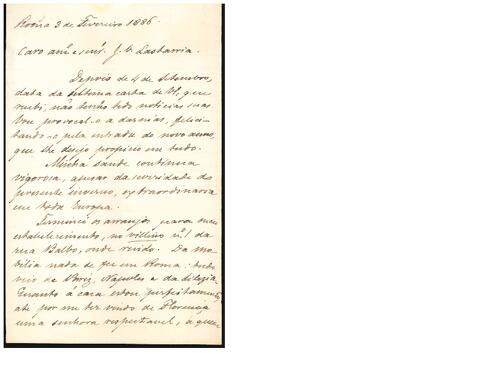 Roma 3 de Fevereiro 1886.
Caro am.º e sen.r J. V. Lastarria.
Depois de 4 de Setembro,
data da ultima carta de V., que
recebi, não tenho tido noticias suas
Vou provocal-o a dar-m'as, felici-
tando-o pela entrada do novo anno,
que lhe desejo propicio em tudo.
Minha saude continua
vigorosa, apesar da severidade do
presente inverno, extraordinaria
em toda Europa.
Terminei os arranjos para meu
estabelecimento, no villino n.º 1 da
rua Balbo, onde resido. Da mo-
bilia nada se fez em Roma: tudo
veio de Pariz, Napoles e da
Quanto á casa estou perfeitamente,
até por me ter vindo de Florença
uma senhora respeitavel, a quem